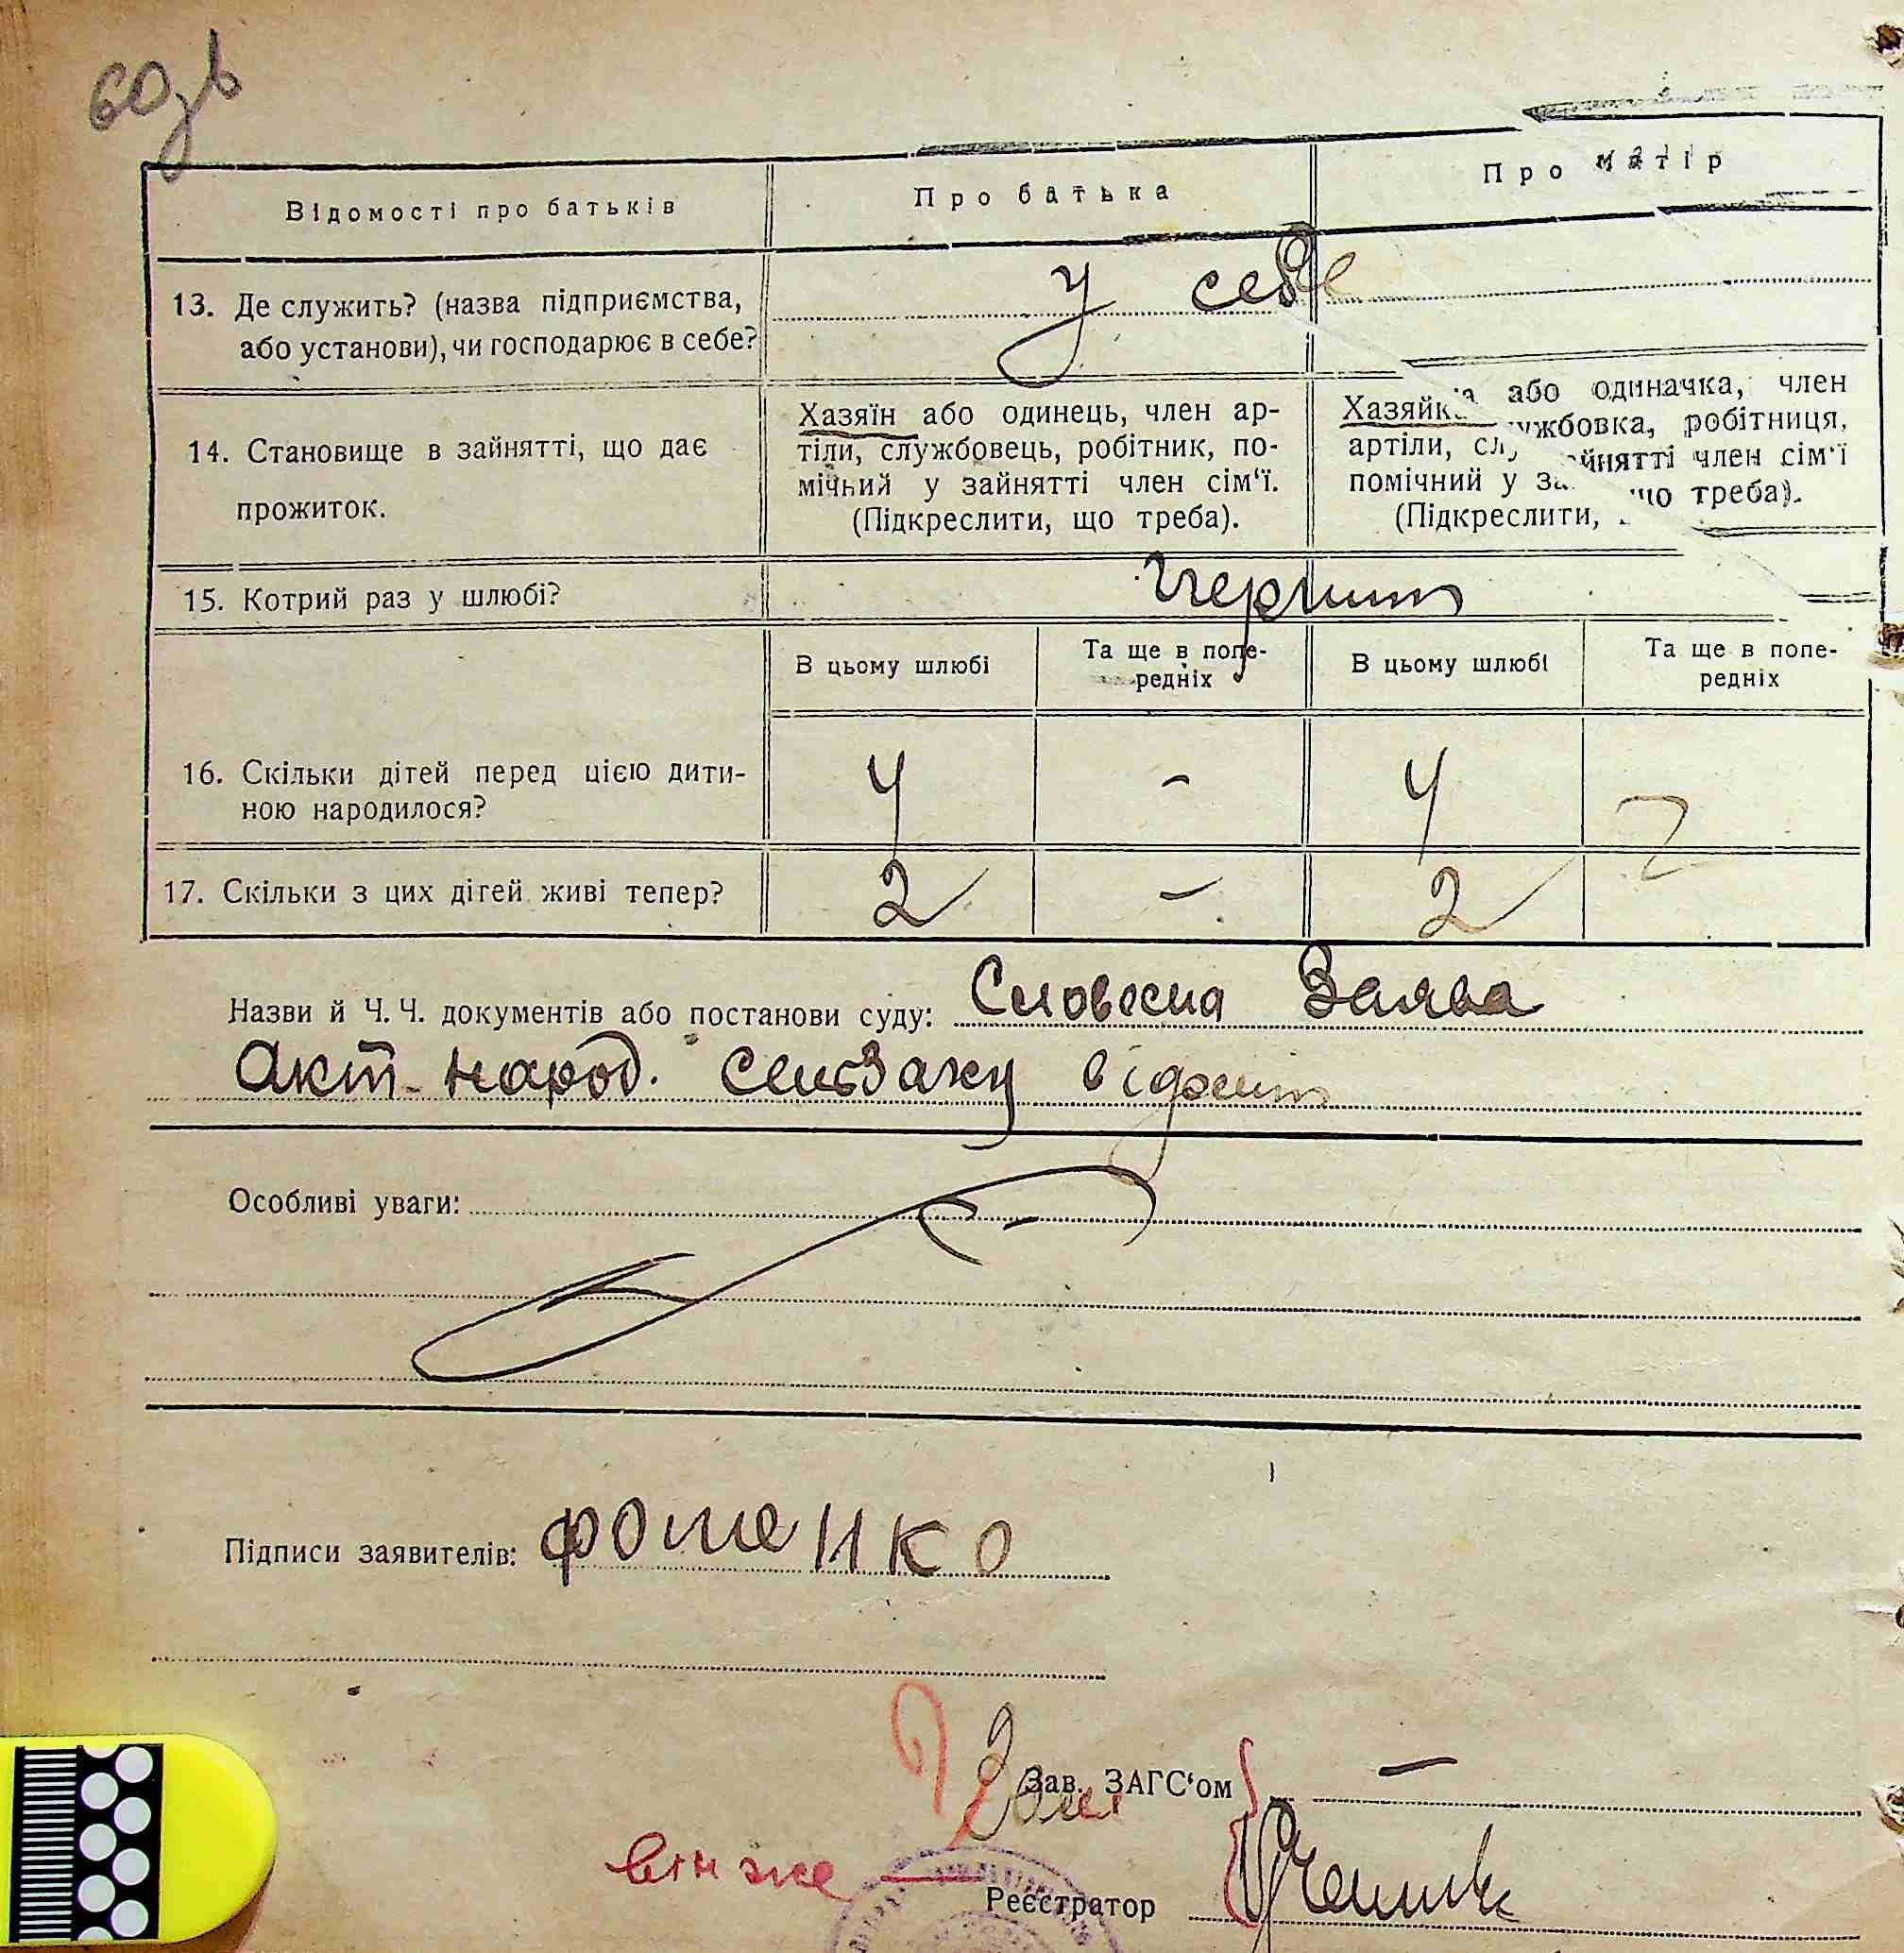 60зв
Відомості про батьків
Про батька
Про матір
13. Де служить? (назва підприємства,
або установи), чи господарює в себе?
у себе
14. Становище в зайнятті, що дає
прожиток.
Хазяїн або одинець, член ар-
тіли, службовець, робітник, по-
мічний у зайнятті член сім‘ї.
(Підкреслити, що треба).
Хазяйка або одиначка, член
артіли, службовка, робітниця,
помічний у зайнятті член сім‘ї
(Підкреслити, що треба).
15. Котрий раз у шлюбі?
В цьому шлюбі
Та ще в попе-
редніх
В цьому шлюбі
Та ще в попе-
редніх
16. Скільки дітей перед цією дити-
ною народилося?
4 - 4
17. Скільки з цих дітей живі тепер?
2 - 2
Назви й Ч. Ч. документів або постанови суду: Словесна Заява
Акт народ.
Особливі уваги:
Підписи заявителів: Фоменко
Зав. ЗАГС‘ом -
він же
Реєстратор